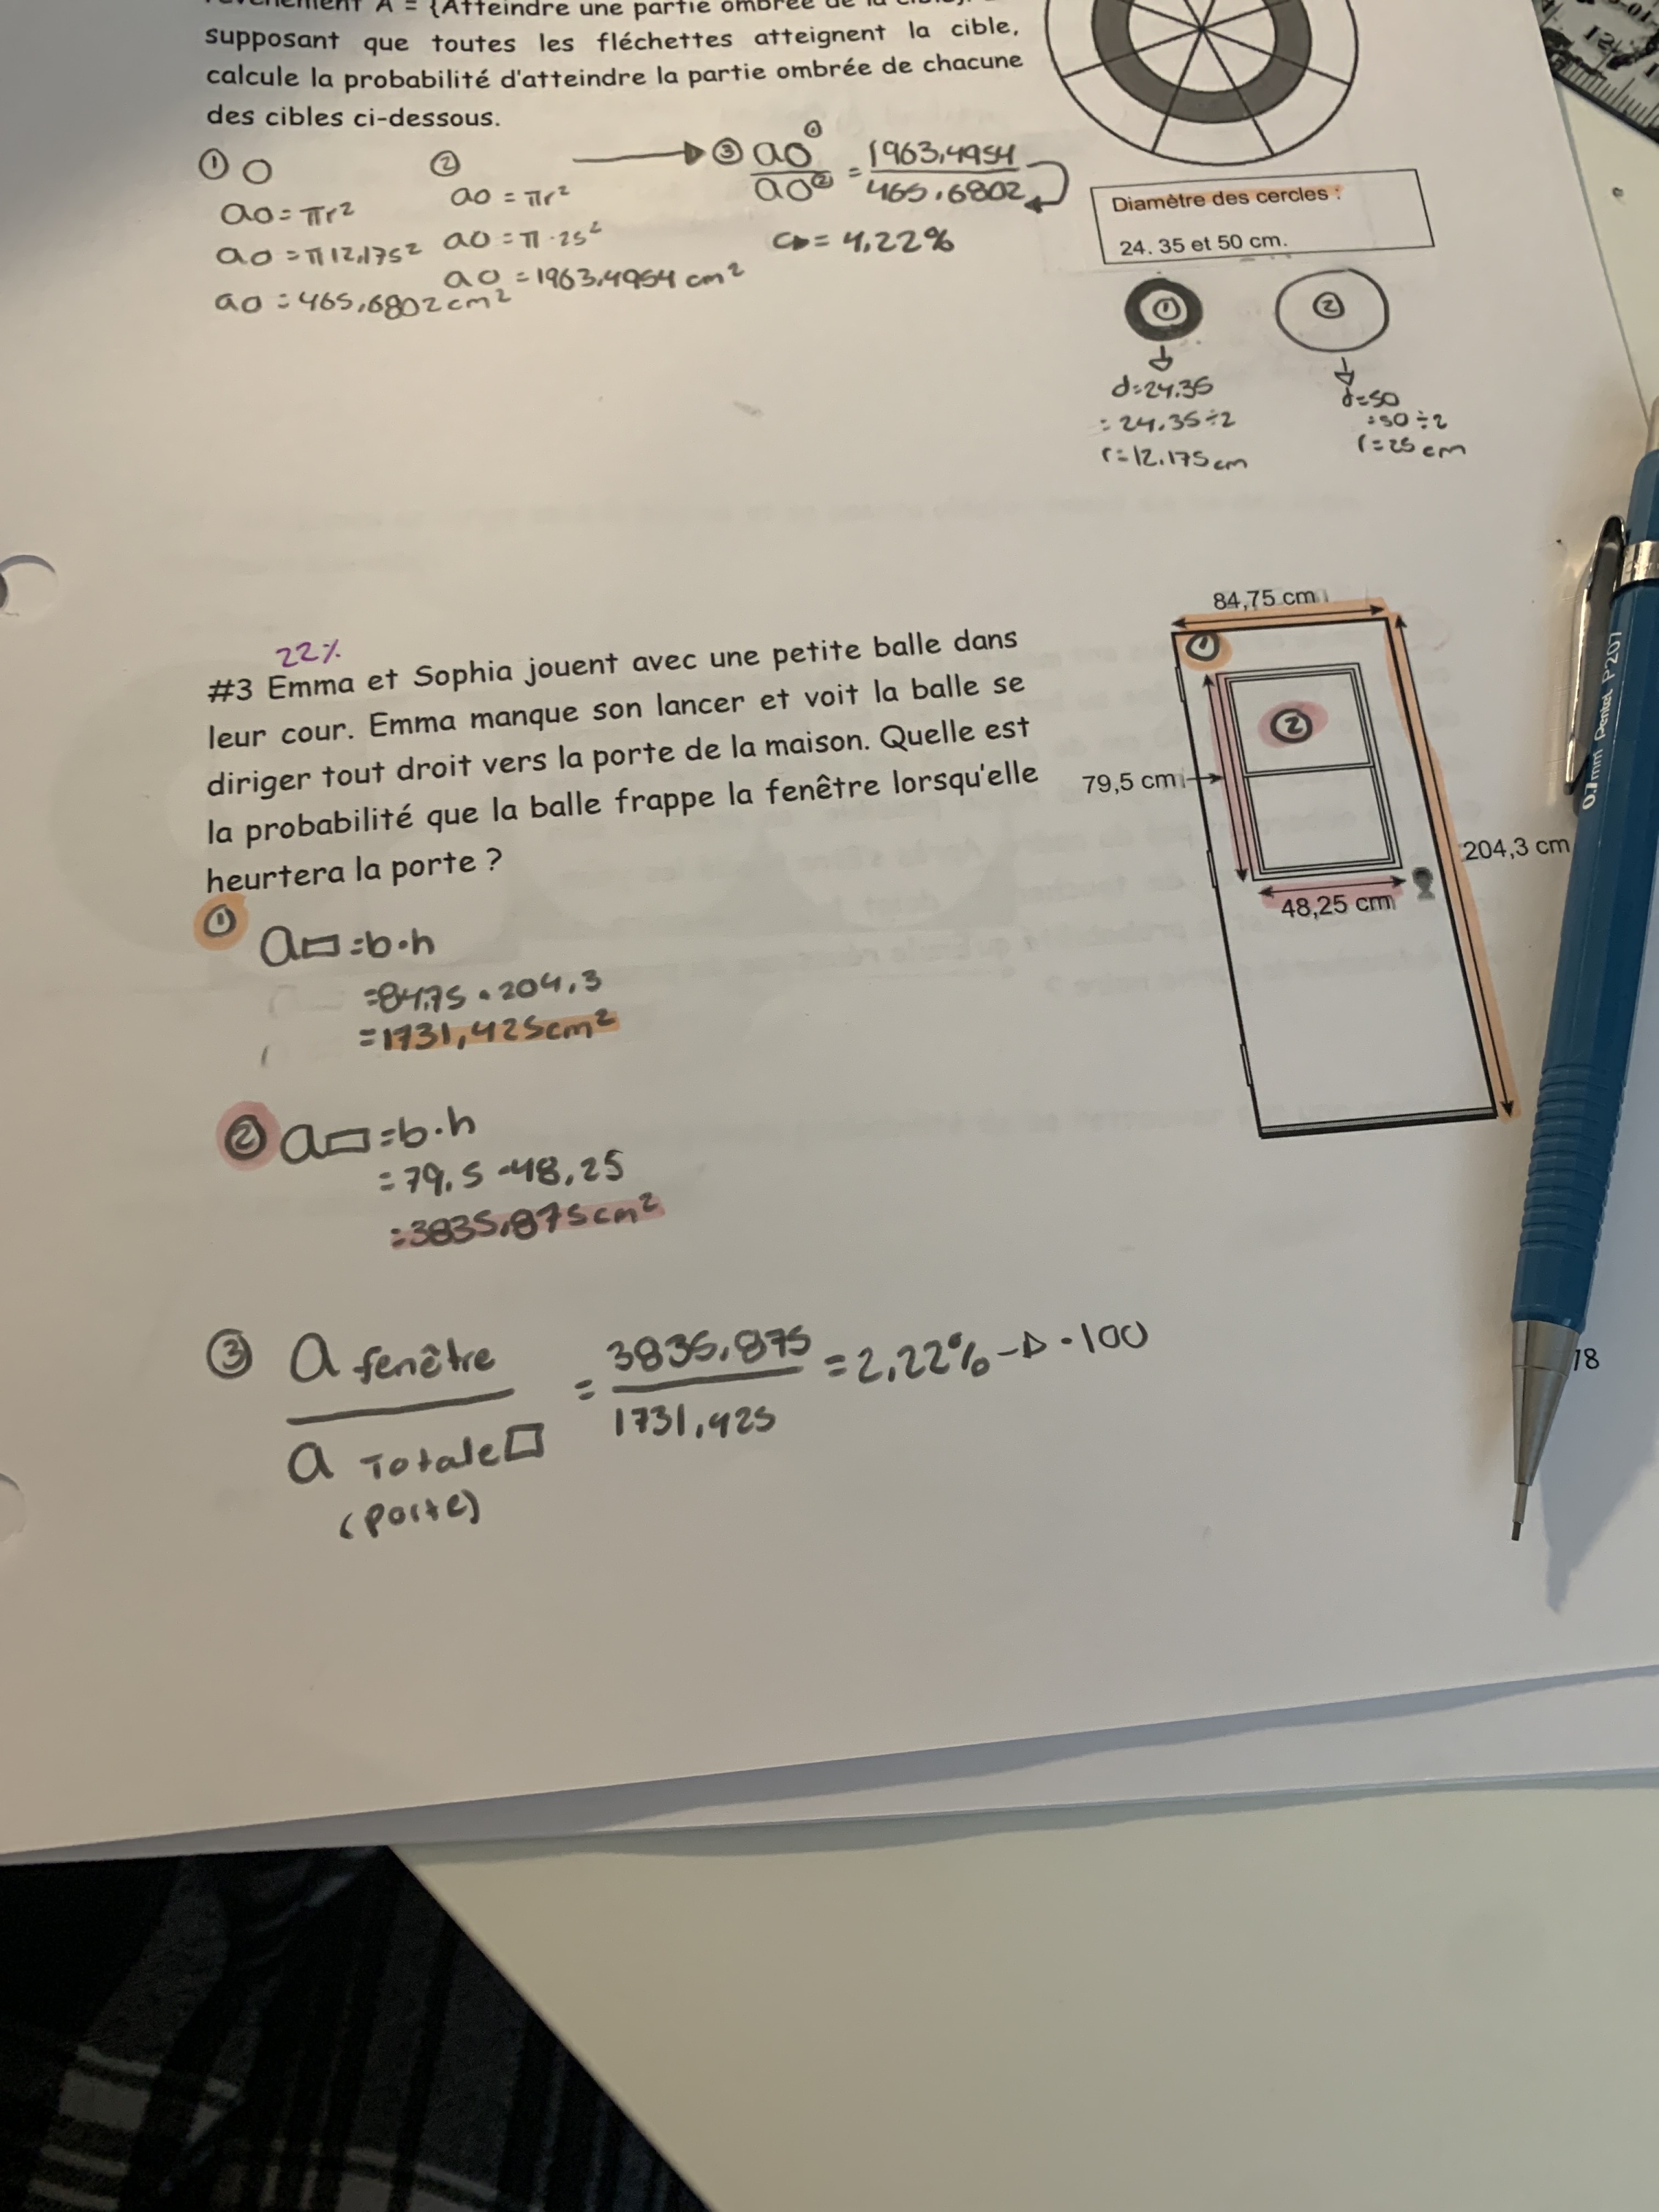 l'événement A = {Atteindre une partie ombrée de la cible}.
supposant que toutes les fléchettes atteignent la cible,
calcule la probabilité d'atteindre la partie ombrée de chacune
des cibles ci-dessous.
① O
ao = πr²
ao = π12,175²
ao = 465,6802 cm²
②
ao = πr²
ao = π · 25²
ao = 1963,4954 cm²
③ ao① / ao② = 1963,4954 / 465,6802
= 4,22%
Diamètre des cercles :
24. 35 et 50 cm.
①
d=24.35
= 24.35÷2
r=12.175cm
②
d=50
=50÷2
r=25cm
22%
#3 Emma et Sophia jouent avec une petite balle dans
leur cour. Emma manque son lancer et voit la balle se
diriger tout droit vers la porte de la maison. Quelle est
la probabilité que la balle frappe la fenêtre lorsqu'elle
heurtera la porte ?
84,75 cm
①
②
79,5 cm
204,3 cm
48,25 cm
①
a▭=b·h
=84,75 · 204,3
=1731,425cm²
② a▭=b·h
=79,5 ·48,25
=3835,875cm²
③ a fenêtre / a Totale□ = 3835,875 / 1731,425 = 2,22% → ·100
(porte)
78
0.7mm Pentel P207